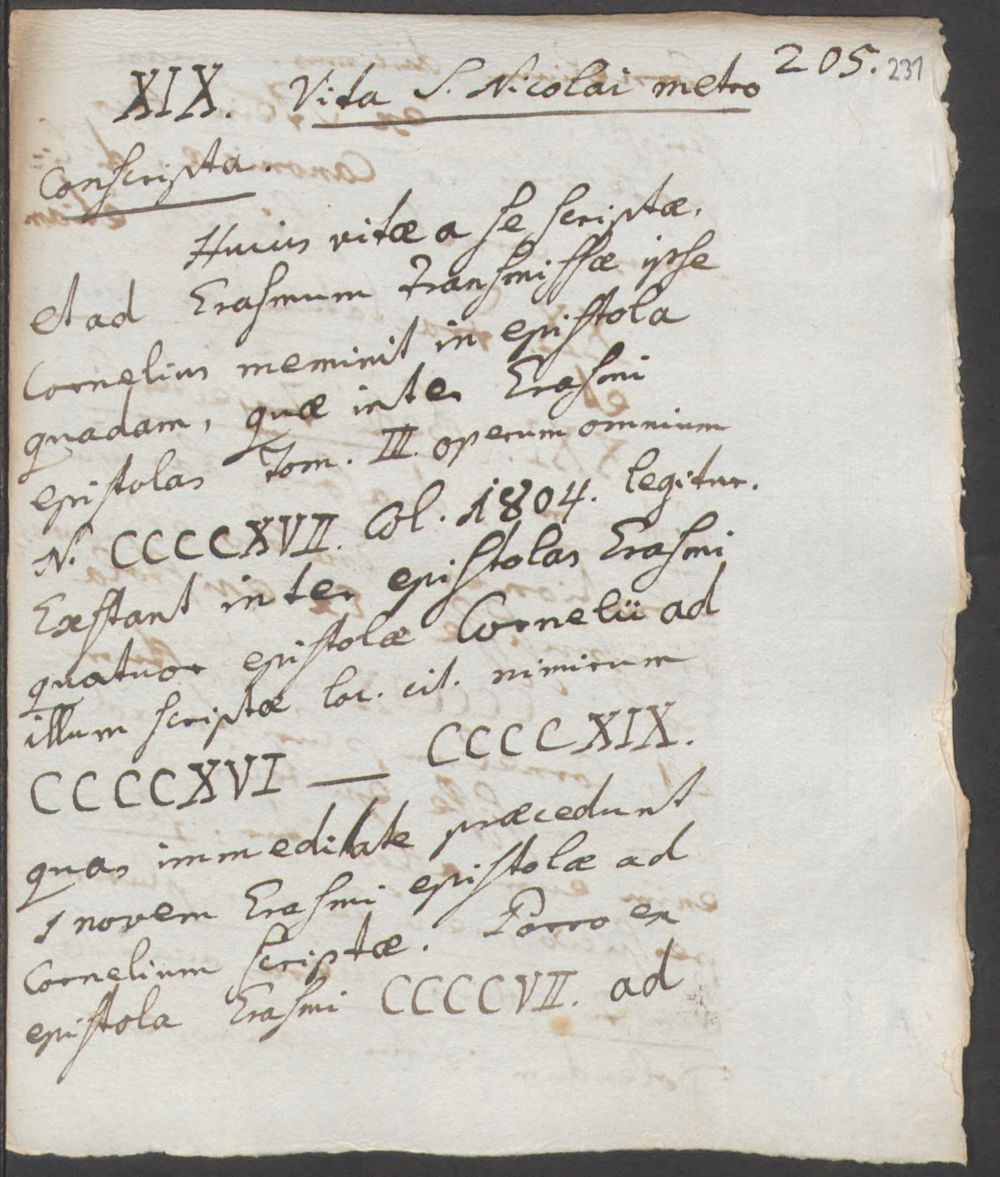 205. 231
XIX. Vita S. Nicolai metro
conscripta.
Huius vitæ a se scriptæ,
et ad Erasmum transmissæ ipse
Cornelius meminit in epistola
quadam, quæ inter Erasmi
epistolas Tom. III. operum omnium
N. CCCCXVII. Col. 1804. legitur.
Exstant inter epistolas Erasmi
quatuor epistolæ Cornelii ad
illum scriptæ loc. cit. nimirum
CCCCXVI — CCCCXIX.
quas immediate præcedunt
novem Erasmi epistolæ ad
Cornelium scriptæ. Porro ex
epistola Erasmi CCCCVII. ad